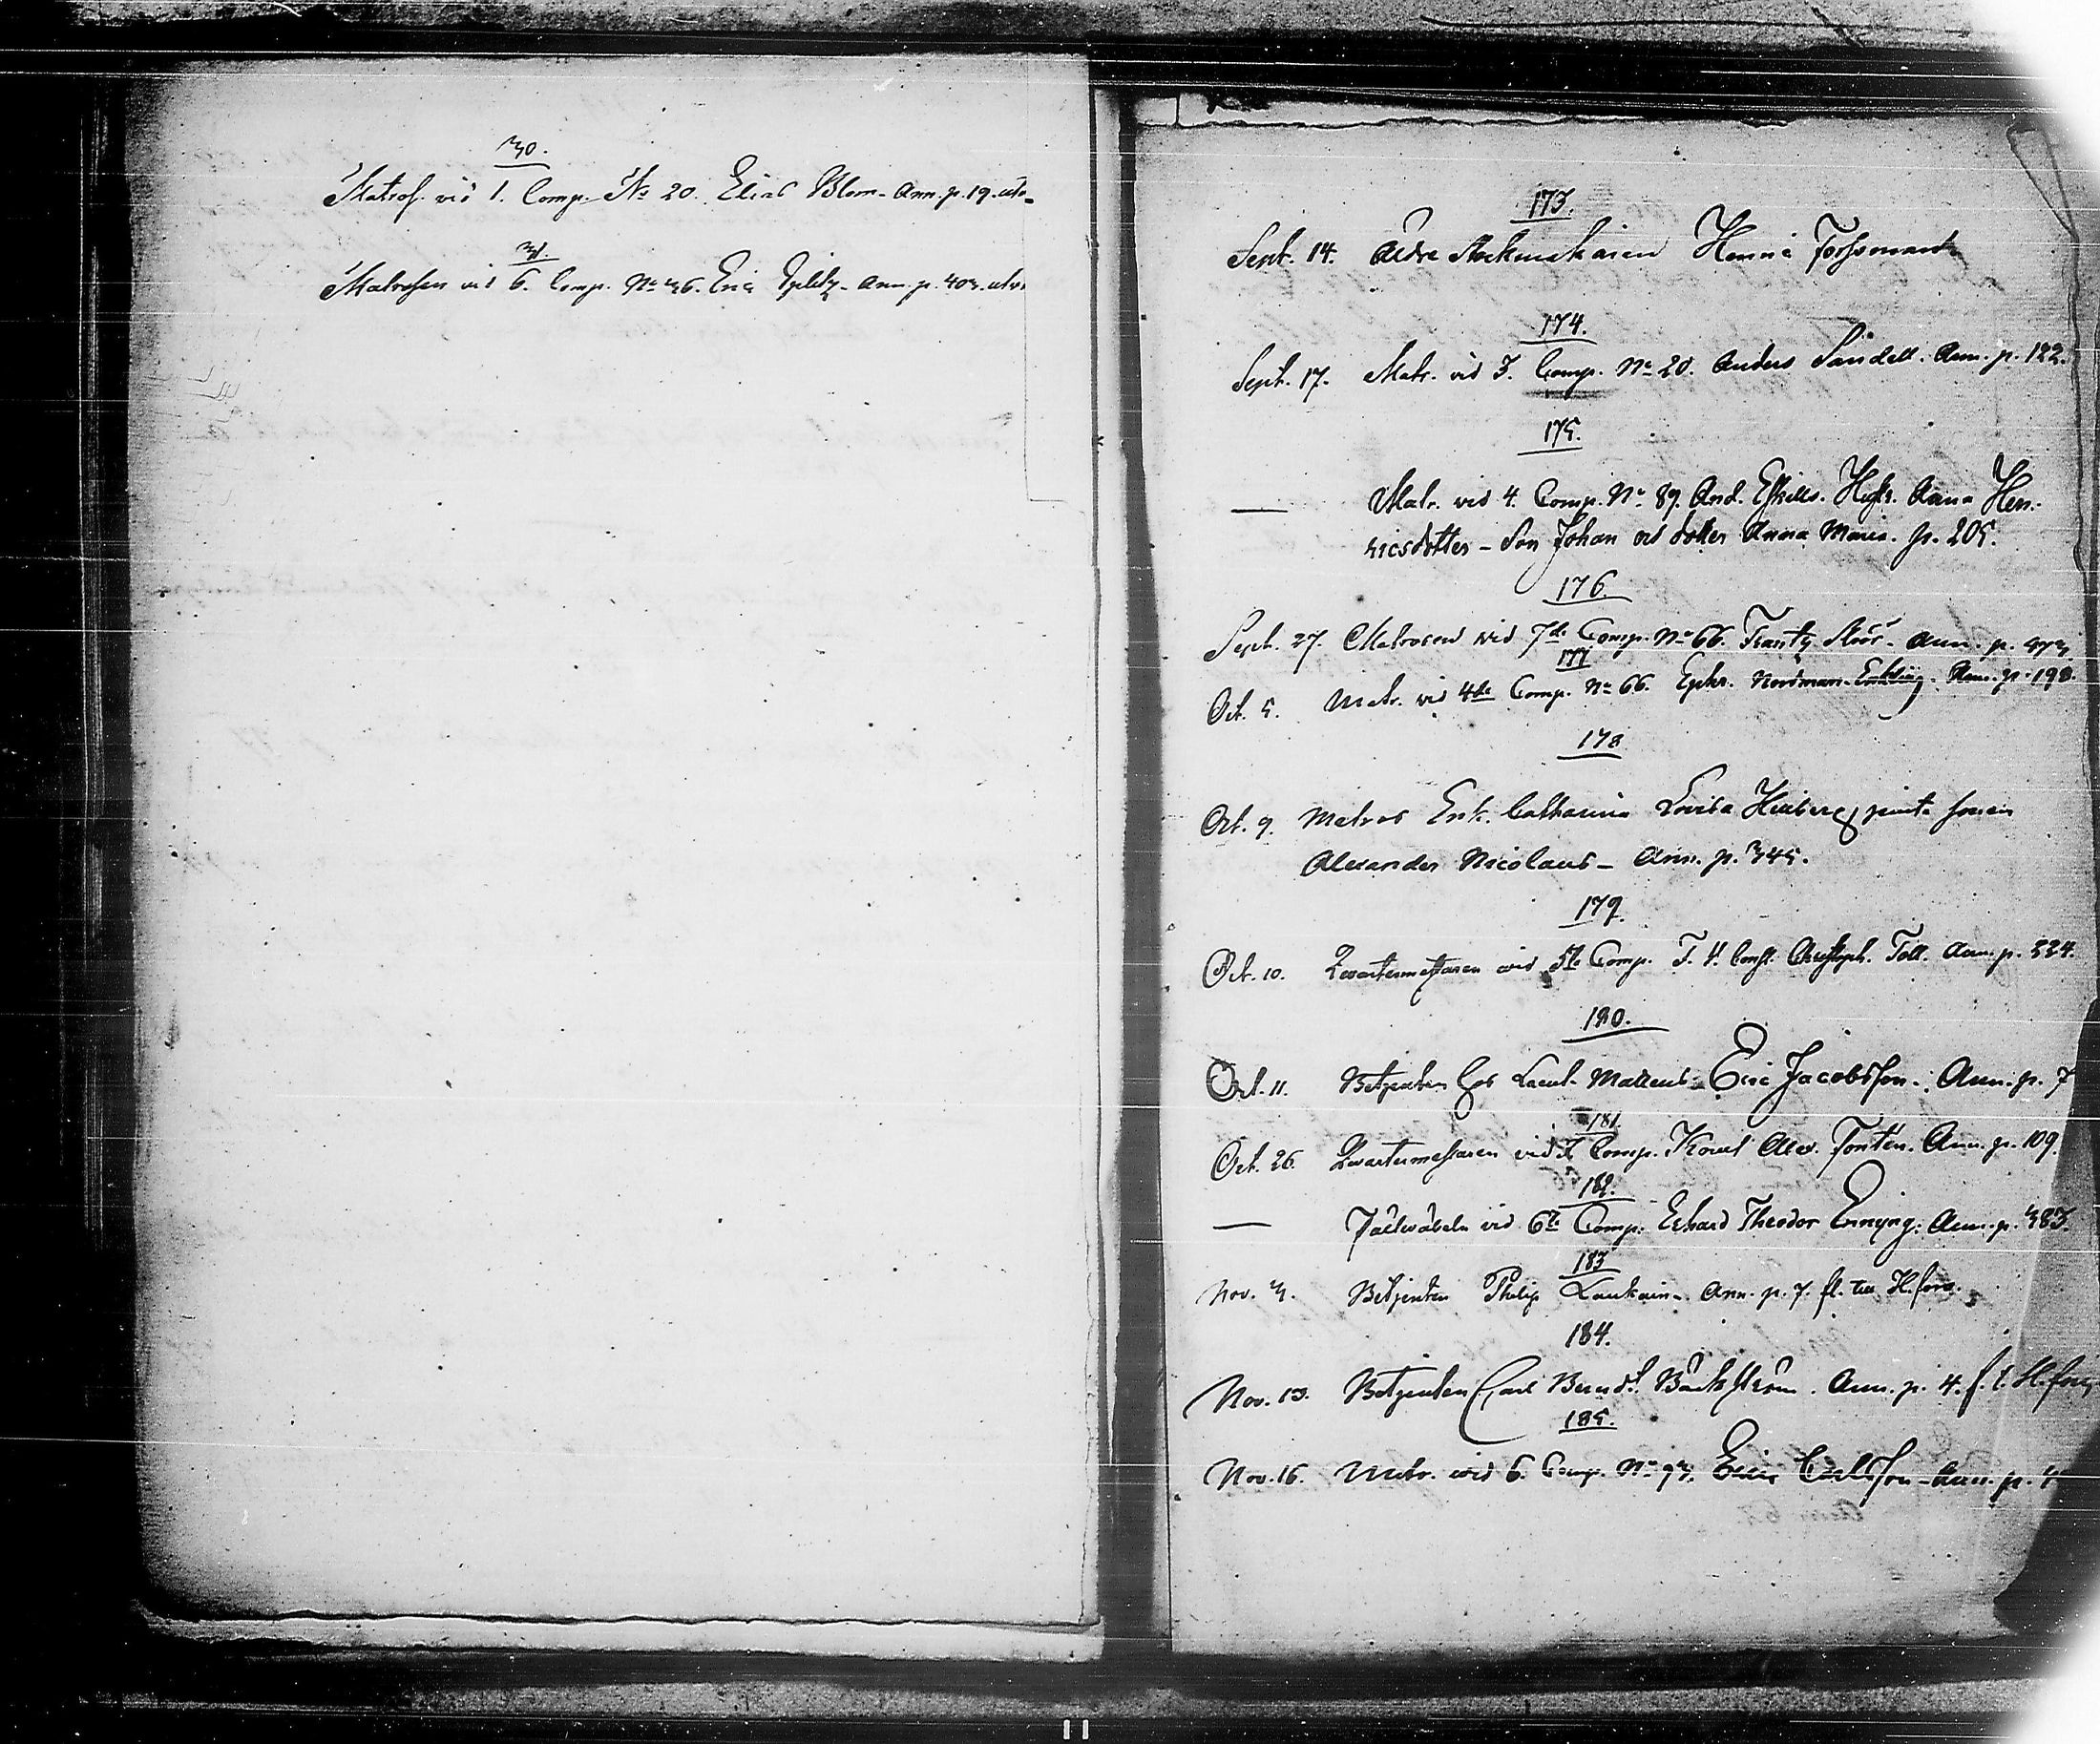 30.
Matros. vid 1. Comp. No 20. Elias Blom - Ann. p. 19. utv.
31.
Matrosen vid 6. Comp. No 36. Eric - Ann. p. 403. utv.
173.
Sept. 14. Äldre Forssman
174.
Sept. 17. Matr. vid 3. Comp. No 20. Anders Sandell. Ann. p. 122.
175.
— Matr. vid 4. Comp. No 89. And. Eskills. Hustr. Anna Hen-
ricsdotter - Son Johan och dotter Anna Maria. p. 205.
176.
Sept. 27. Matrosen vid 7de Comp. No 66. Frantz Stoor - Ann. p. 473
177
Oct. 5. Matr. vid 4de Comp. No 66. Ephr. Nordman. Ann. p. 198.
178
Oct. 9. Matros Enk. Catharina Lovisa jemte sonen
Alexander Nicolaus - Ann. p. 345.
179.
Oct. 10. Quartermästaren vid 5te Comp. Christoph. Toll. Ann. p. 324.
180.
Oct. 11. Betjenten hos Lieut. Eric Jacobsson. Ann. p. 7
181.
Oct. 26. Quartermästaren vid Comp. Knut Alex. Fontén. Ann. p. 109.
182.
— Fältväbeln vid 6te Comp. Erhard Theodor Ann. p. 383.
183
Nov. 3. Betjenten Philip Ann. p. 7. fl. till H.fors.
184.
Nov. 13. Betjenten Carl Bernd. Bäckström. Ann. p. 4. f. t. H.fors
185.
Nov. 16. Matr. vid 6. Comp. No 93. Eric Carlsson - Ann. p. 4